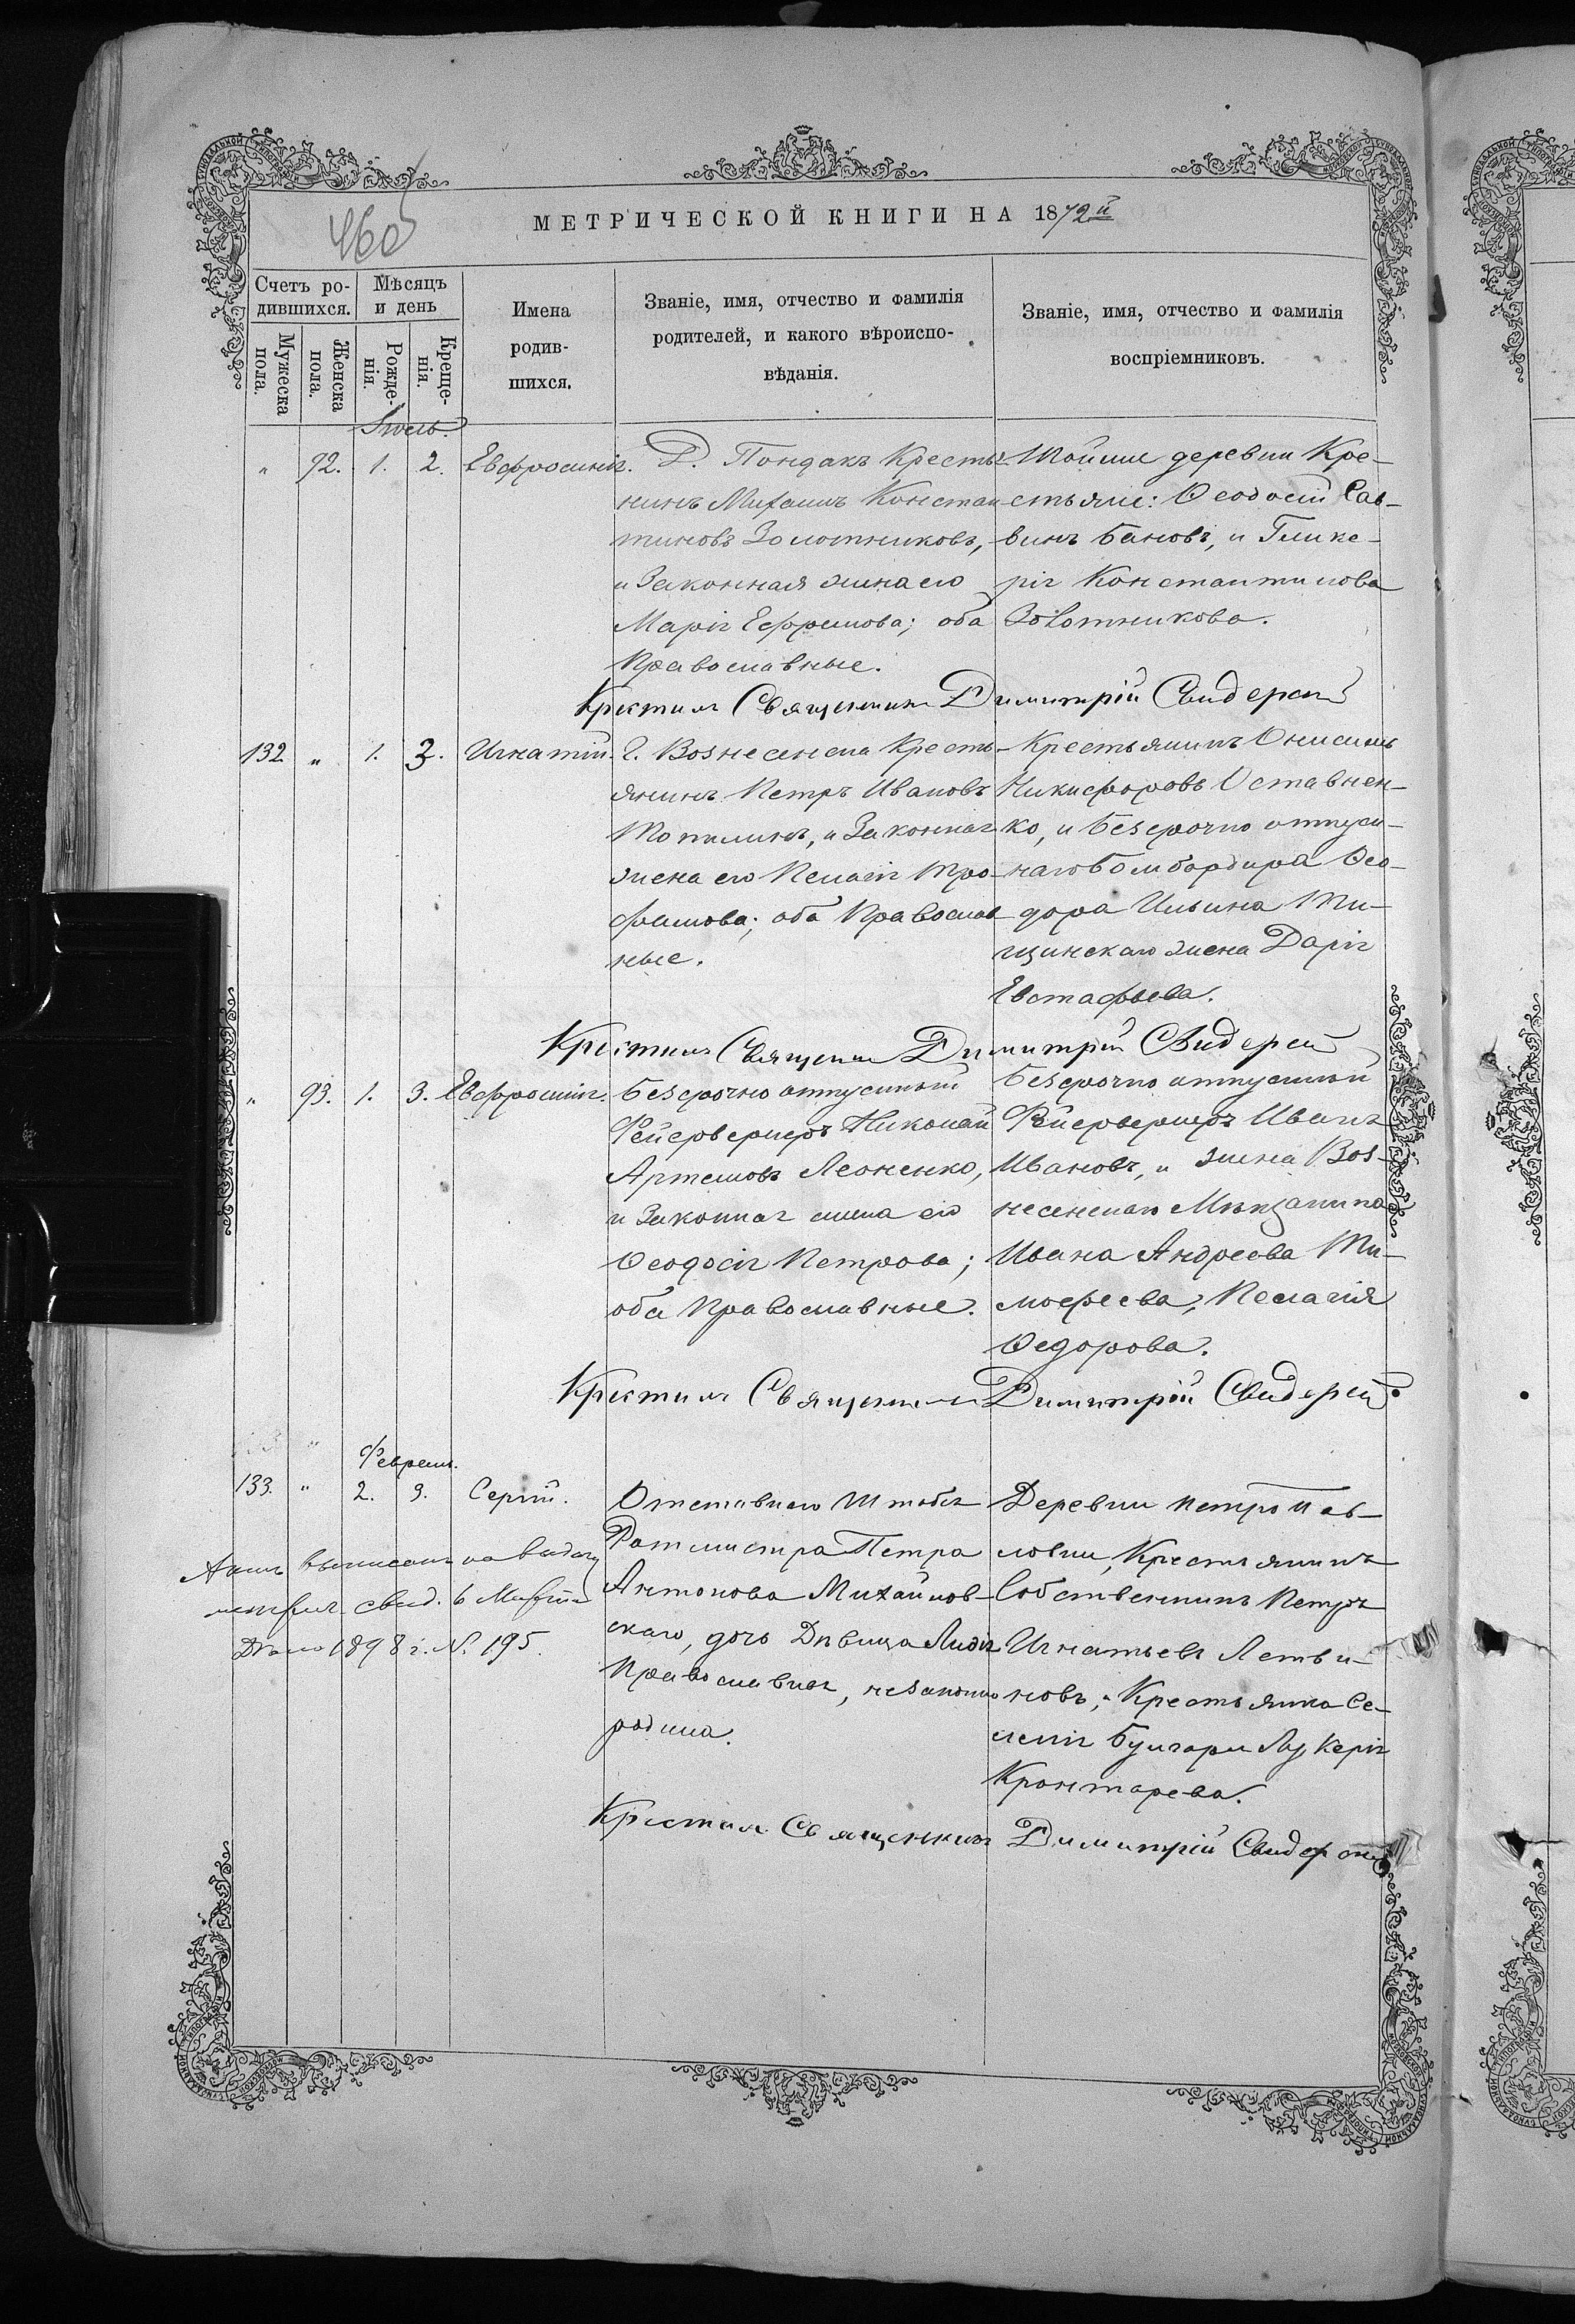 460
МЕТРИЧЕСКОЙ КНИГИ НА 1872й
Счетъ ро-
дившихся.
Мѣсяцъ
и день
Мужеска
пола.
Женска
пола.
Рожде-
нія.
Креще-
нія.
Имена
родив-
шихся.
Званіе, имя, отчество и фамилія
родителей, и какого вѣроиспо-
вѣданія.
Званіе, имя, отчество и фамилія
воспріемниковъ.
„ 92. 1. 2. Евфросинія.
Д. Пондакъ Крестья-
нинъ Михаилъ Констан
тиновъ Золотниковъ,
и Законная жена его
Марія Ефремова; оба
Православные.
Тойже деревни Кре-
стьяне: Ѳеодосій Сав-
винъ Бановъ, и Глике-
рія Константинова
Золотникова.
Крестилъ Священникъ Димитрій Свидерскій
132 „ 1. 3. Игнатій.
Г. Вознесенска Кресть-
янинъ Петръ Ивановъ
Топилинъ, и Законная
жена его Пелагія Тро-
фимова; оба Православ-
ные.
Крестьянинъ Онисимъ
Никифоровъ Оставнен-
ко, и Безсрочно отпуск-
наго Бомбардира Ѳео-
дора Ильина Ти-
щинскаго жена Дарія
Евстафьева.
Крестилъ Священникъ Димитрій Свидерскій
„ 93. 1. 3. Евфросинія.
Безсрочно отпускной
Фейерверкеръ Николай
Артемовъ Леоненко,
и Законная жена его
Ѳеодосія Петрова;
оба Православные.
Безсрочно отпускной
Фейерверкеръ Иванъ
Ивановъ, и жена Воз-
несенскаго Мѣщанина
Ивана Андреева Ти-
мофеева, Пелагія
Ѳедорова.
Крестилъ Священникъ Димитрій Свидерскій
Феврал.
133. „ 2. 3. Сергій.
Отставнаго Штабсъ
Ротмистра Петра
Антонова Михайлов-
скаго, дочь Дѣвица Лидія
Православная, незаконно
родила.
Деревни Петропав-
ловки, Крестьянинъ
Собственникъ Петръ
Игнатьевъ Летви-
новъ, и Крестьянка Се-
ленія Булгарки Лукерія
Кронтарева.
Актъ выписанъ на выдачу
метрич. свид. 6 Марта
Дѣло 1898 г. № 195.
Крестилъ Священникъ Димитрій Свидерскій